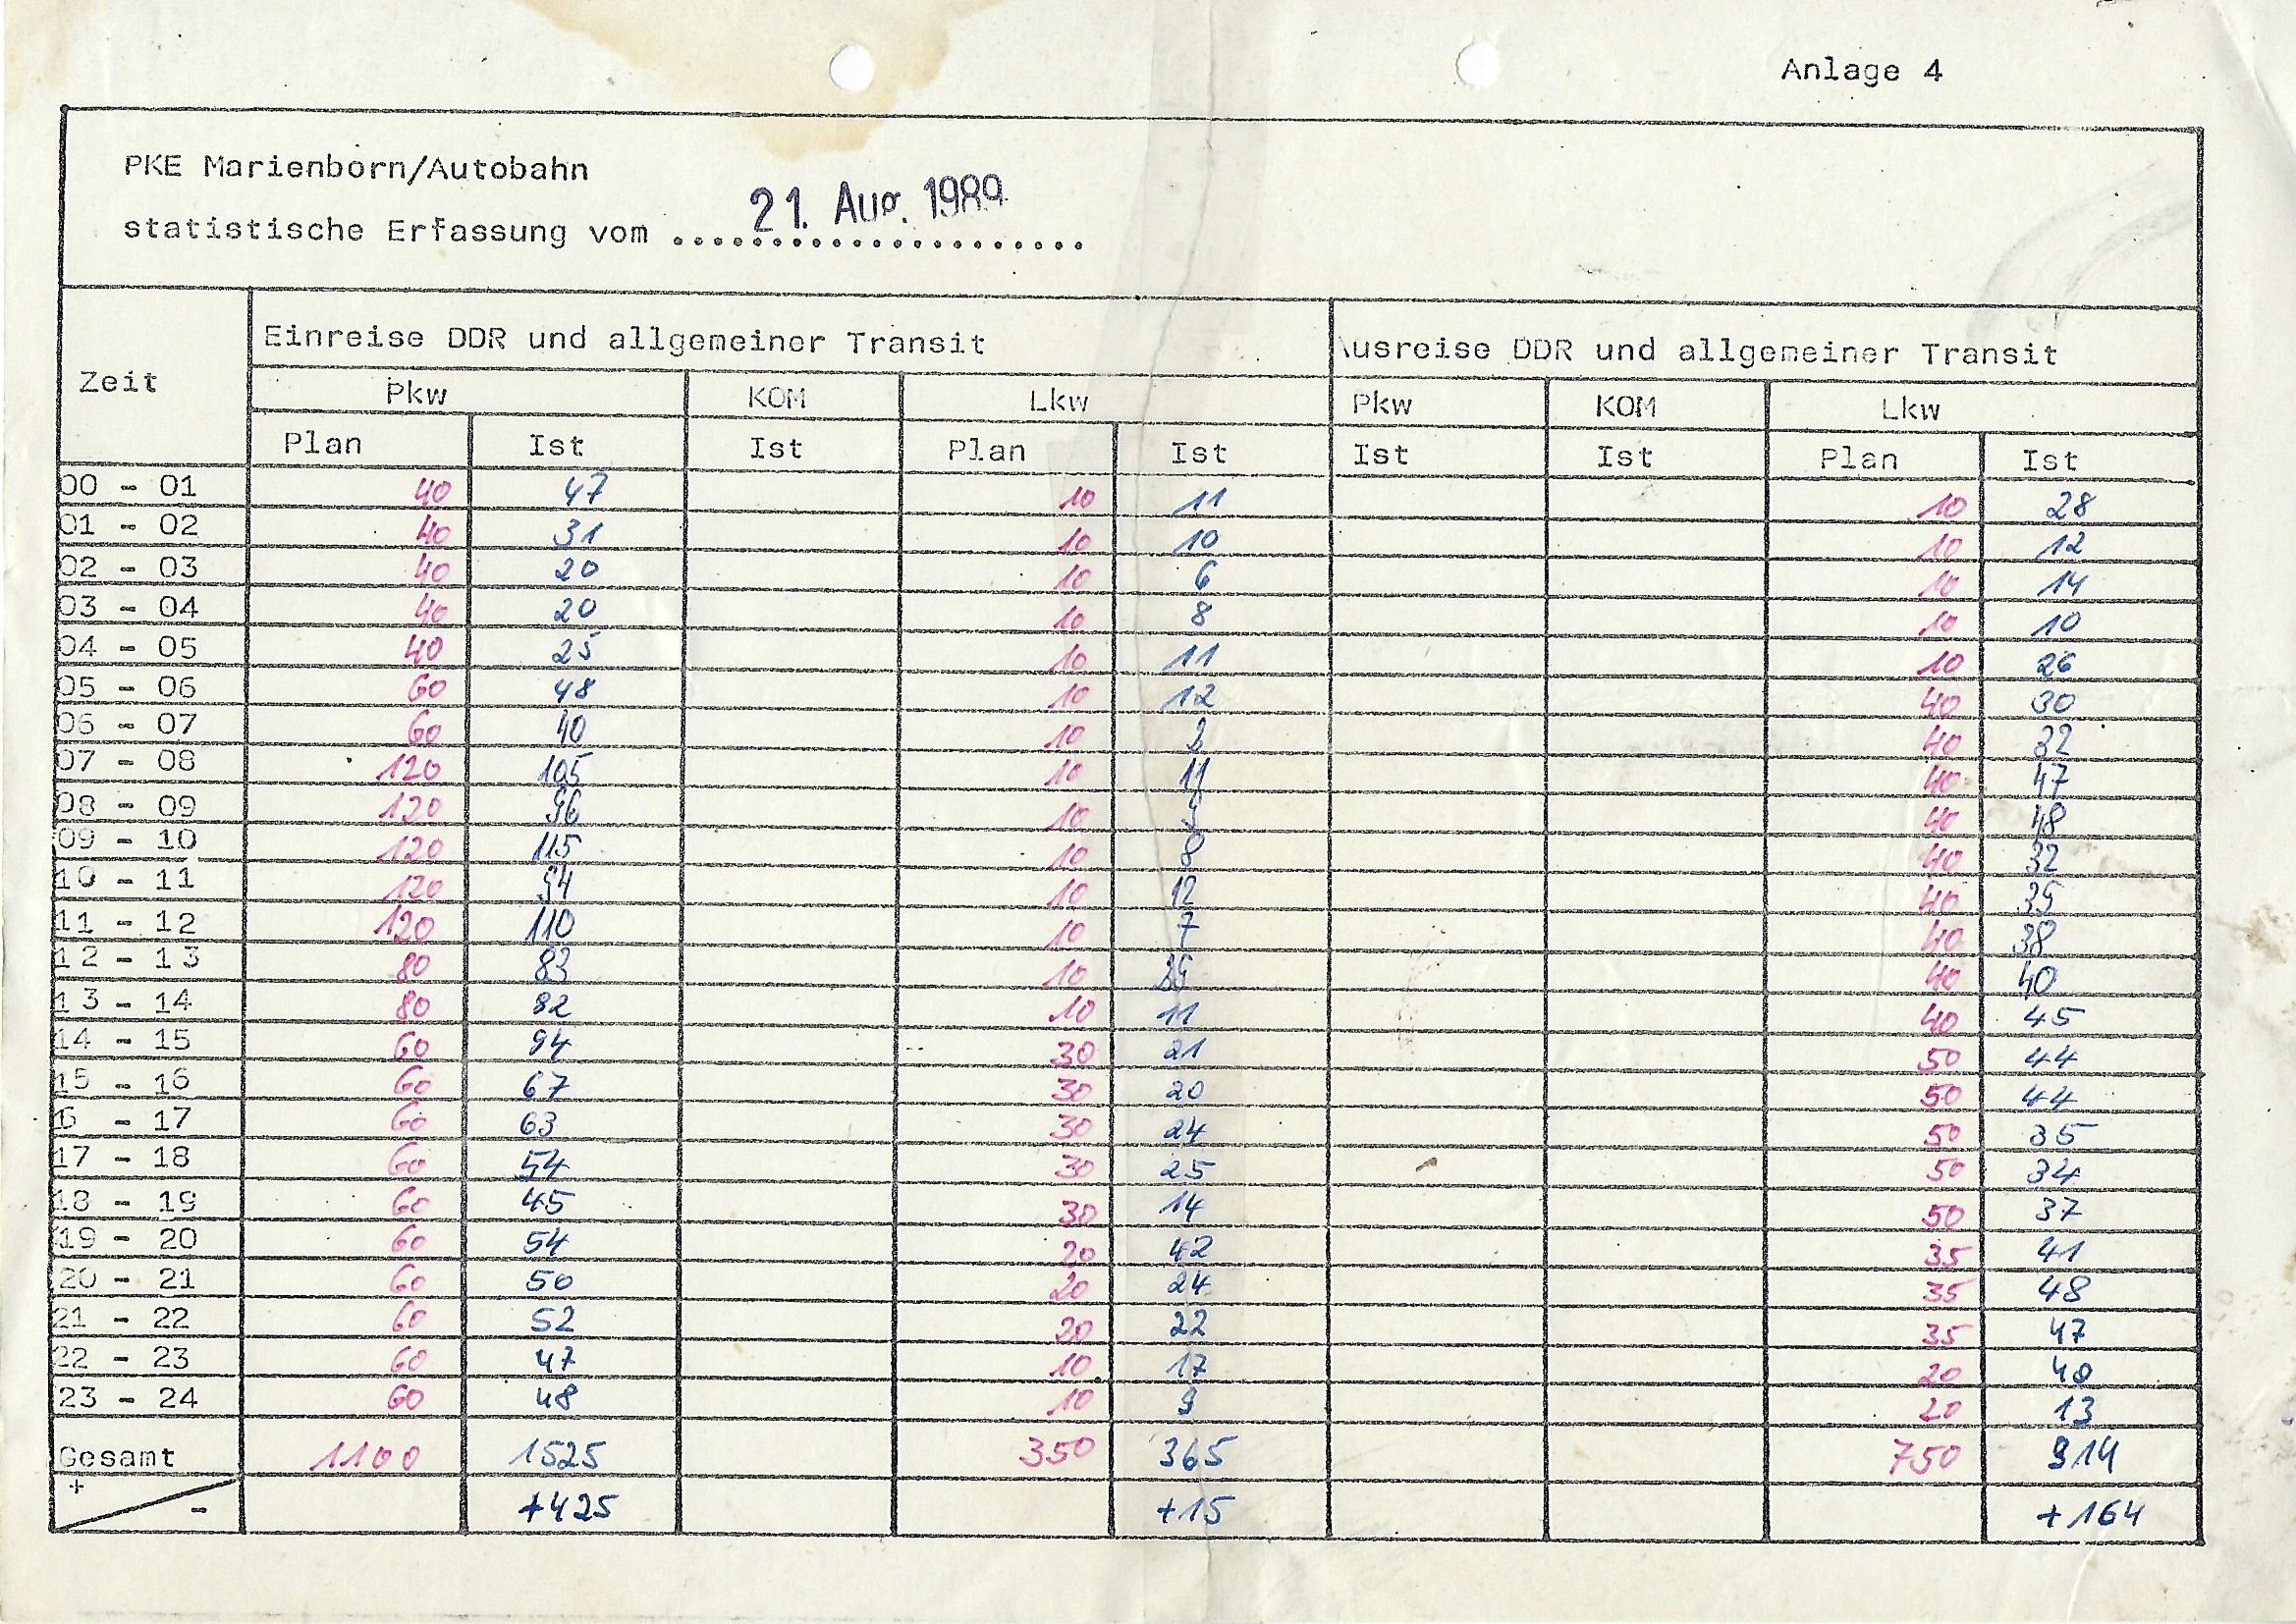 Anlage 4
PKE Marienborn/Autobahn
statistische Erfassung vom 21. Aug. 1989
Zeit Einreise DDR und allgemeiner Transit Ausreise DDR und allgemeiner Transit
Pkw KOM Lkw Pkw KOM Lkw
Plan Ist Ist Plan Ist Ist Ist Plan Ist
00 - 01 40 47 10 11 10 28
01 - 02 40 31 10 10 10 12
02 - 03 40 20 10 6 10 14
03 - 04 40 20 10 8 10 10
04 - 05 40 25 10 11 10 26
05 - 06 60 48 10 12 40 30
06 - 07 60 40 10 2 40 32
07 - 08 120 105 10 11 40 47
08 - 09 120 96 10 40 48
09 - 10 120 115 10 8 40 32
10 - 11 120 94 10 12 40
11 - 12 120 110 10 7 40 38
12 - 13 80 83 10 40 40
13 - 14 80 82 10 11 40 45
14 - 15 60 94 30 21 50 44
15 - 16 60 67 30 20 50 44
6 - 17 60 63 30 24 50 35
17 - 18 60 54 30 25 50 34
18 - 19 60 45 30 14 50 37
19 - 20 60 54 20 42 35 41
20 - 21 60 50 20 24 35 48
21 - 22 60 52 20 22 35 47
22 - 23 60 47 10 17 20 40
23 - 24 60 48 10 9 20 13
Gesamt 1100 1525 350 365 750 914
+ - +425 +15 +164